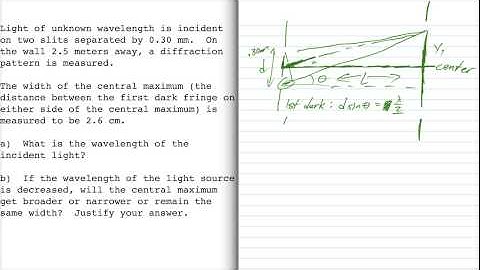 Light of unknown wavelength is incident
on two slits separated by 0.30 mm. On
the wall 2.5 meters away, a diffraction
pattern is measured.
The width of the central maximum (the
distance between the first dark fringe on
either side of the central maximum) is
measured to be 2.6 cm.
a) What is the wavelength of the
incident light?
b) If the wavelength of the light source
is decreased, will the central maximum
get broader or narrower or remain the
same width? Justify your answer.
.30mm
d
θ
L
Y₁
center
1st dark: d sinθ = λ/2